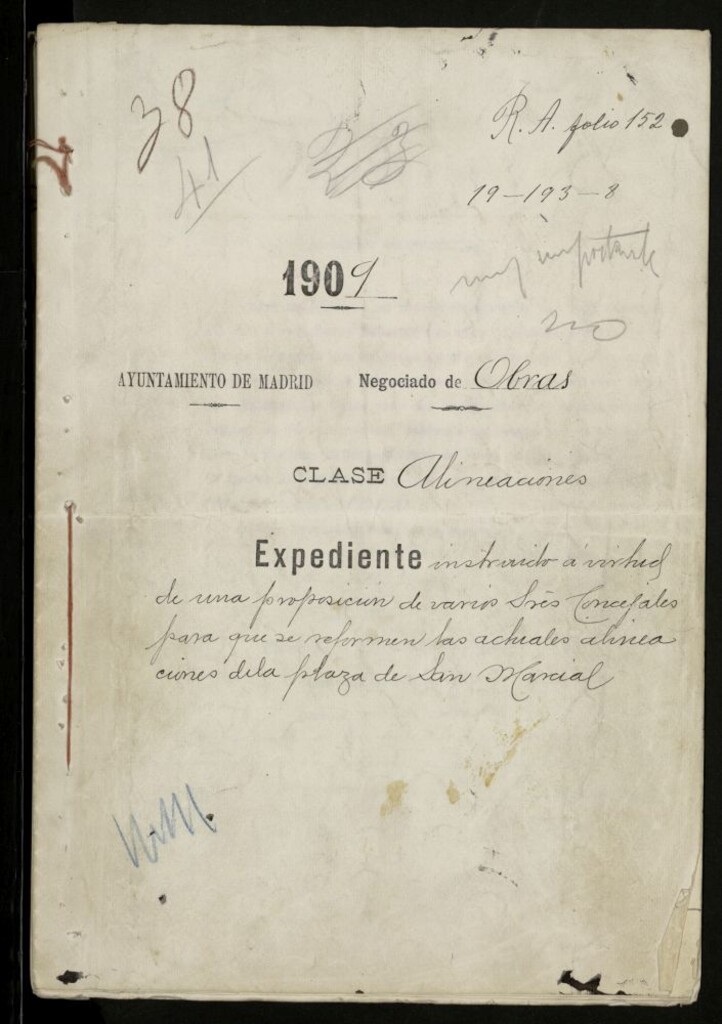 38
41
23
R. A. folio 152
19-193-8
muy importante
no
1909
AYUNTAMIENTO DE MADRID Negociado de Obras
CLASE Alineaciones
Expediente instruido á virtud
de una proposición de varios Sres Concejales
para que se reformen las actuales alinea
ciones dela plaza de San Marcial